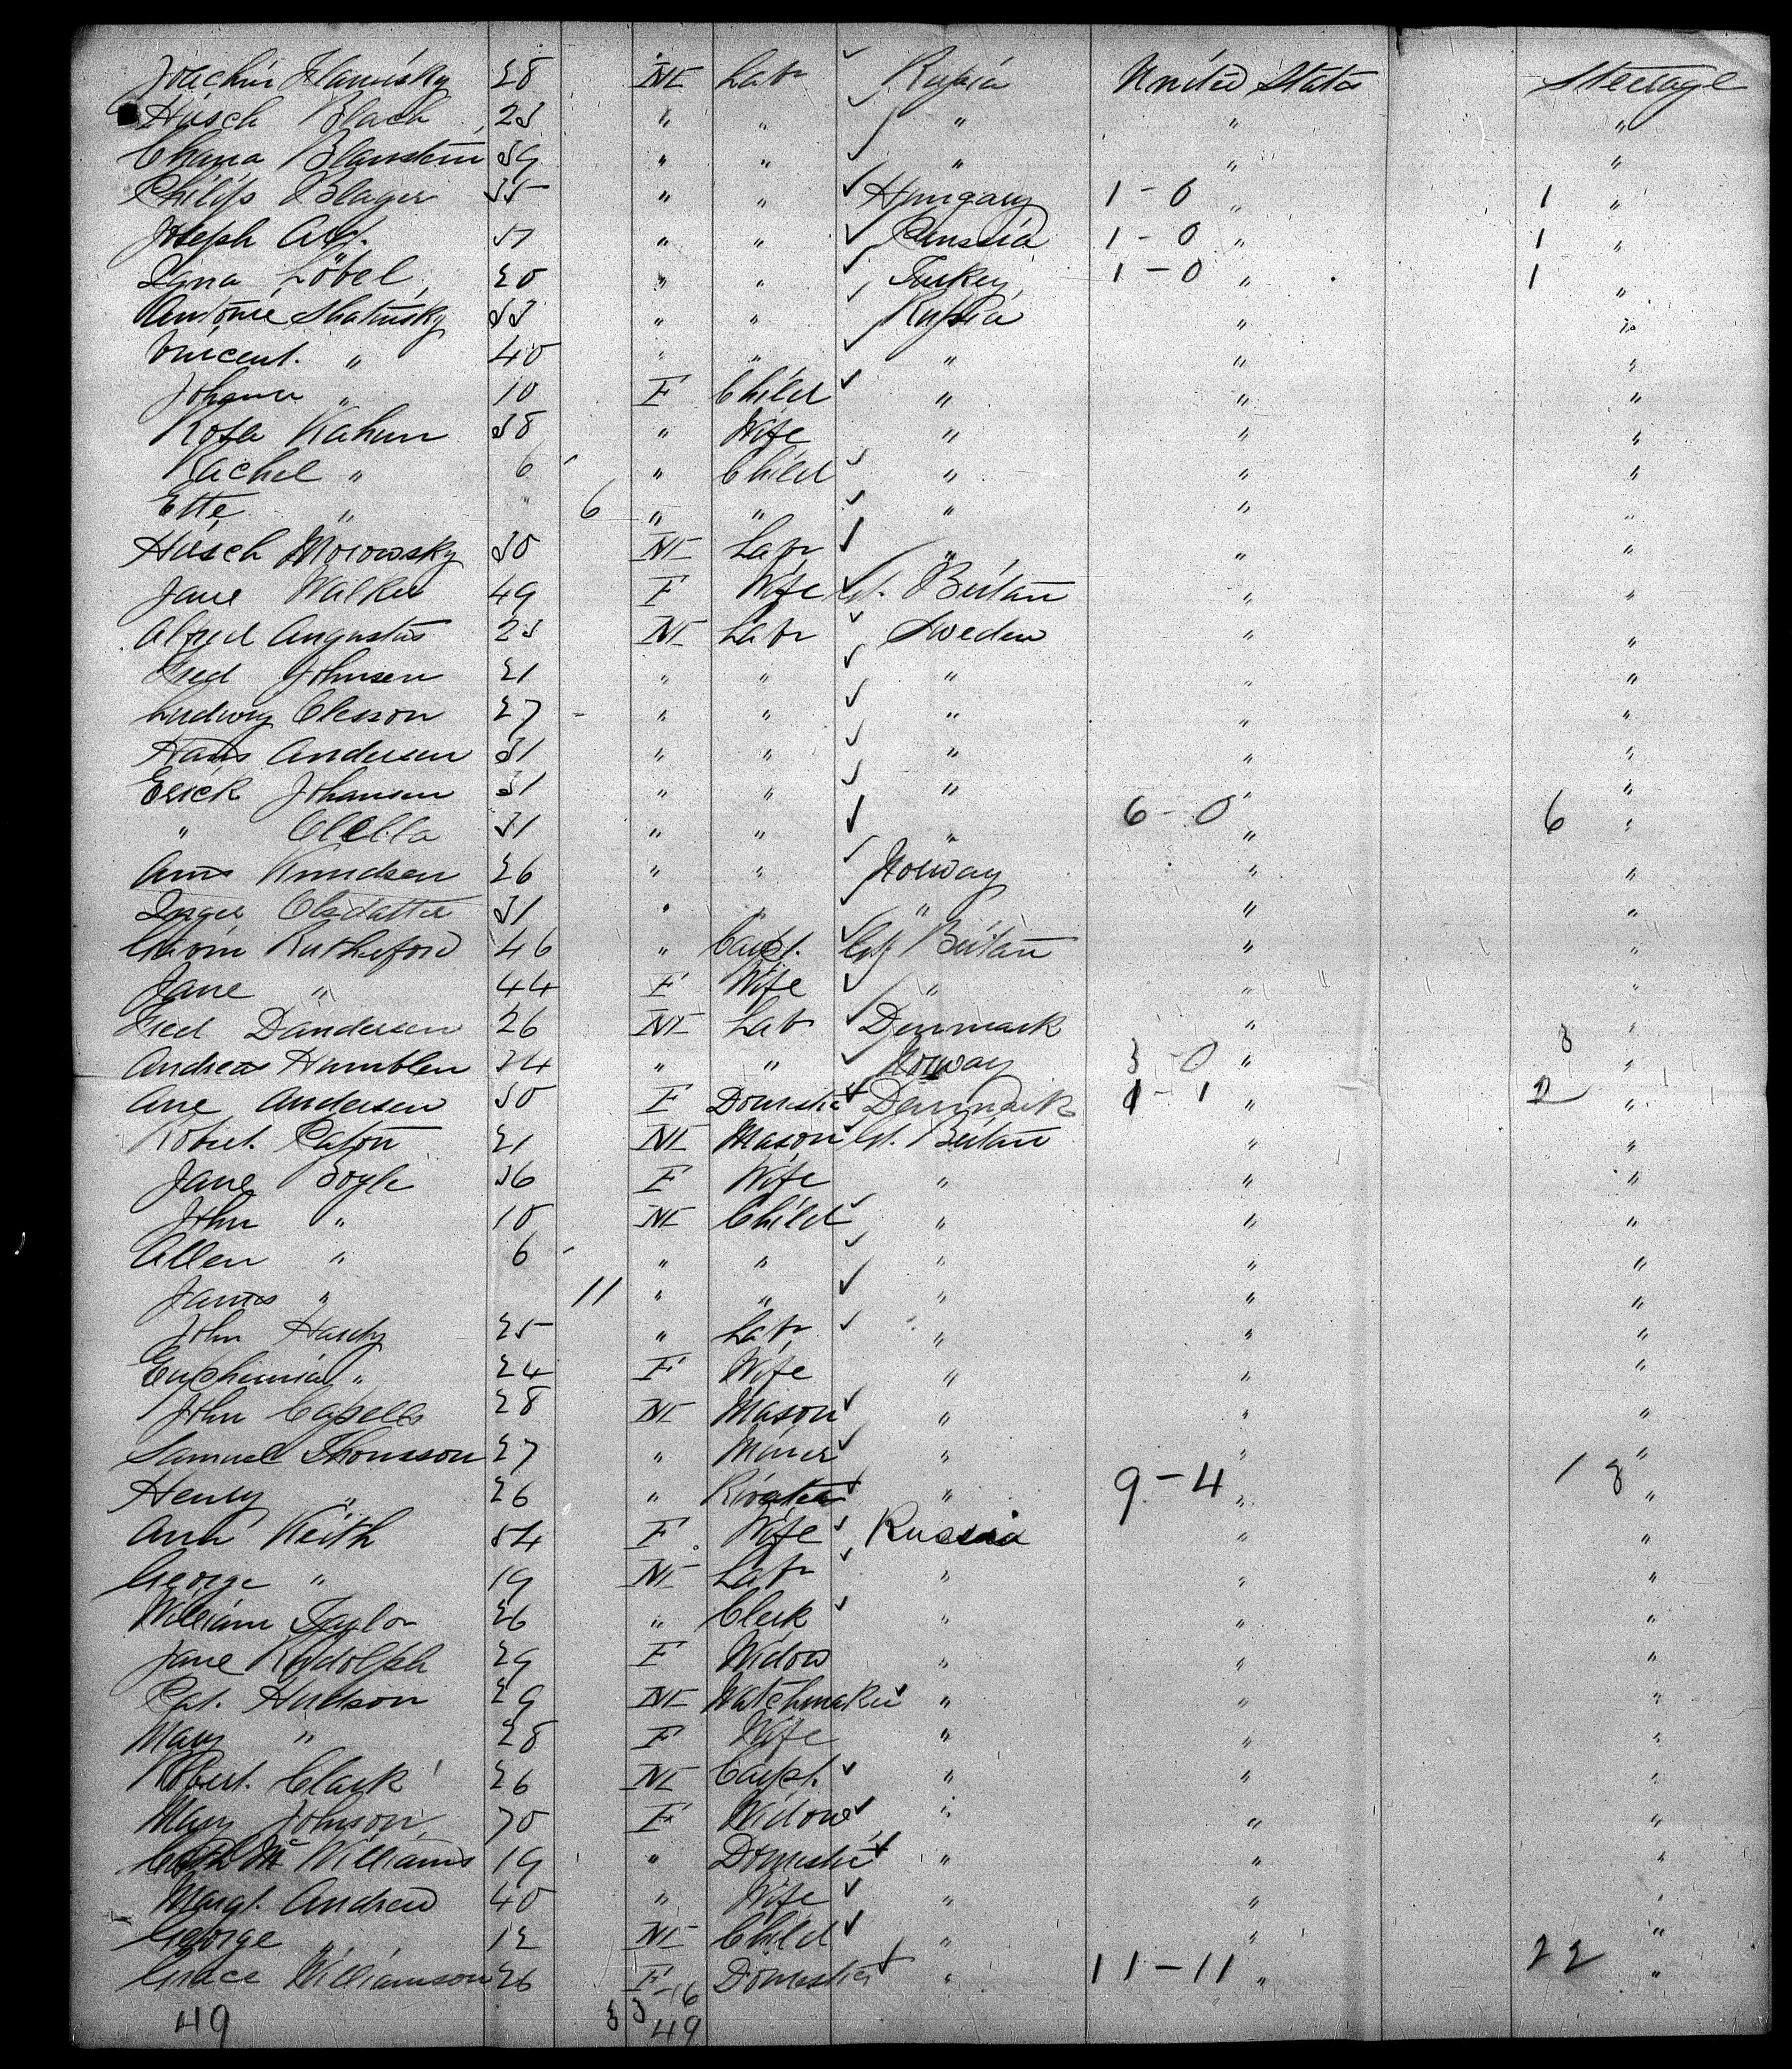 Joachin Slavisky 28 M Labr ✓ Russia United States Steerage
Hirsch Black 23 " " ✓ " " "
Chana Blaustein 39 " " ✓ " " "
Philip Blager 35 " " ✓ Hungary 1-0 " 1 "
Joseph 37 " " ✓ Prussia 1-0 " 1 "
Igna Löbel 20 " " ✓ Turkey 1-0 " 1 "
Antonie Shatinsky 33 " " ✓ Russia " "
Vincent. " 40 " " ✓ " " "
Johann " 10 F Child ✓ " " "
Rosa Kahun 38 " Wife " " "
Rachel " 6 " Child ✓ " " "
Ette " " 6 " " ✓ " " "
Hirsch Morowsky 30 M Labr ✓ " " "
Jane Walker 49 F Wife ✓ Gt. Britain " "
Alfred Augustus 23 M Labr ✓ Sweden " "
Fred Johnsen 21 " " ✓ " " "
Ludwig Olesson 27 - " " ✓ " " "
Hans Andersen 31 " " ✓ " " "
Erick Johansen 31 " " ✓ " " "
" Olella 31 " " ✓ " 6-0 " 6 "
Ams Knudsen 26 " " ✓ Norway " "
Inger Olsdatter 31 " " ✓ " " "
Gavin Rutherford 46 " Carpt. ✓ Gt Britain " "
Jane " 44 F Wife ✓ " " "
Fred Dandersen 26 M Labr ✓ Denmark " "
Andreas Humblen 34 " " ✓ Norway 3-0 " 3 "
Ane Andersen 30 F Domestic ✓ Denmark 1-1 " 2 "
Robert. Paton 21 M Mason ✓ Gt. Britain " "
Jane Boyle 36 F Wife " " "
John " 10 M Child ✓ " " "
Allen " 6 " " ✓ " " "
James " 11 " " ✓ " " "
John Hardy 25 " Labr ✓ " " "
Euphemia " 24 F Wife " " "
John Capells 28 M Mason ✓ " " "
Samuel Thomsson 27 " Miner ✓ " " "
Henry " 26 " ✓ " 9-4 " 13 "
Ann Keith 54 F Wife ✓ Russia " "
George " 19 M Labr ✓ " " "
William Taylor 26 " Clerk ✓ " " "
Jane Rudolph 29 F Widow " " "
Pat. Hudson 29 M Watchmaker ✓ " " "
Mary " 28 F Wife " " "
Robert. Clark 26 M Carpt. ✓ " " "
Mary Johnson 70 F Widow ✓ " " "
Williams 19 " Domestic ✓ " " "
Margt. Andrew 40 " Wife ✓ " " "
George " 12 M Child ✓ " " "
Grace Williamson 26 F Domestic ✓ " 11-11 " 22 "
49 33-16
49